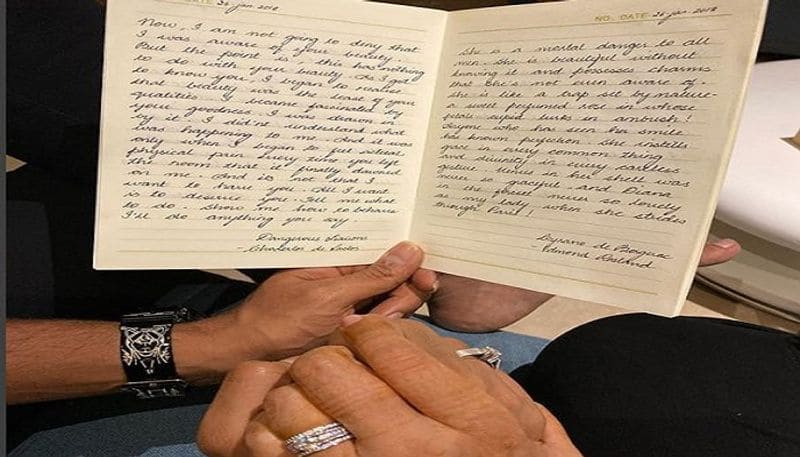 DATE 26 Jan. 2018
Now, I am not going to deny that
I was aware of your beauty.
But the point is, this has nothing
to do with your beauty. As I got
to know you, I began to realise
that beauty was the least of your
qualities. I became fascinated by
your goodness. I was drawn in
by it. I didn't understand what
was happening to me. And it was
only when I began to feel actual
physical pain every time you left
the room that it finally dawned
on me.
want to have you. All I want
is to deserve you. Tell me what
to do. Show me how to behave
I'll do anything you say.
Dangerous Liaisons
NO. DATE 26 Jan. 2018
She is a mortal danger to all
men. She is beautiful without
knowing it and possesses charms
that she's not even aware of.
She is like a trap set by nature-
a sweet perfumed rose in whose
petals cupid lurks in ambush!
Anyone who has seen her smile
has known perfection. She instills
grace in every common thing
and divinity in every careless
gesture. Venus in her shell was
never so lovely
as my lady when she strides
through Paris!
Cyrano de Bergerac
- Edmond Rostand